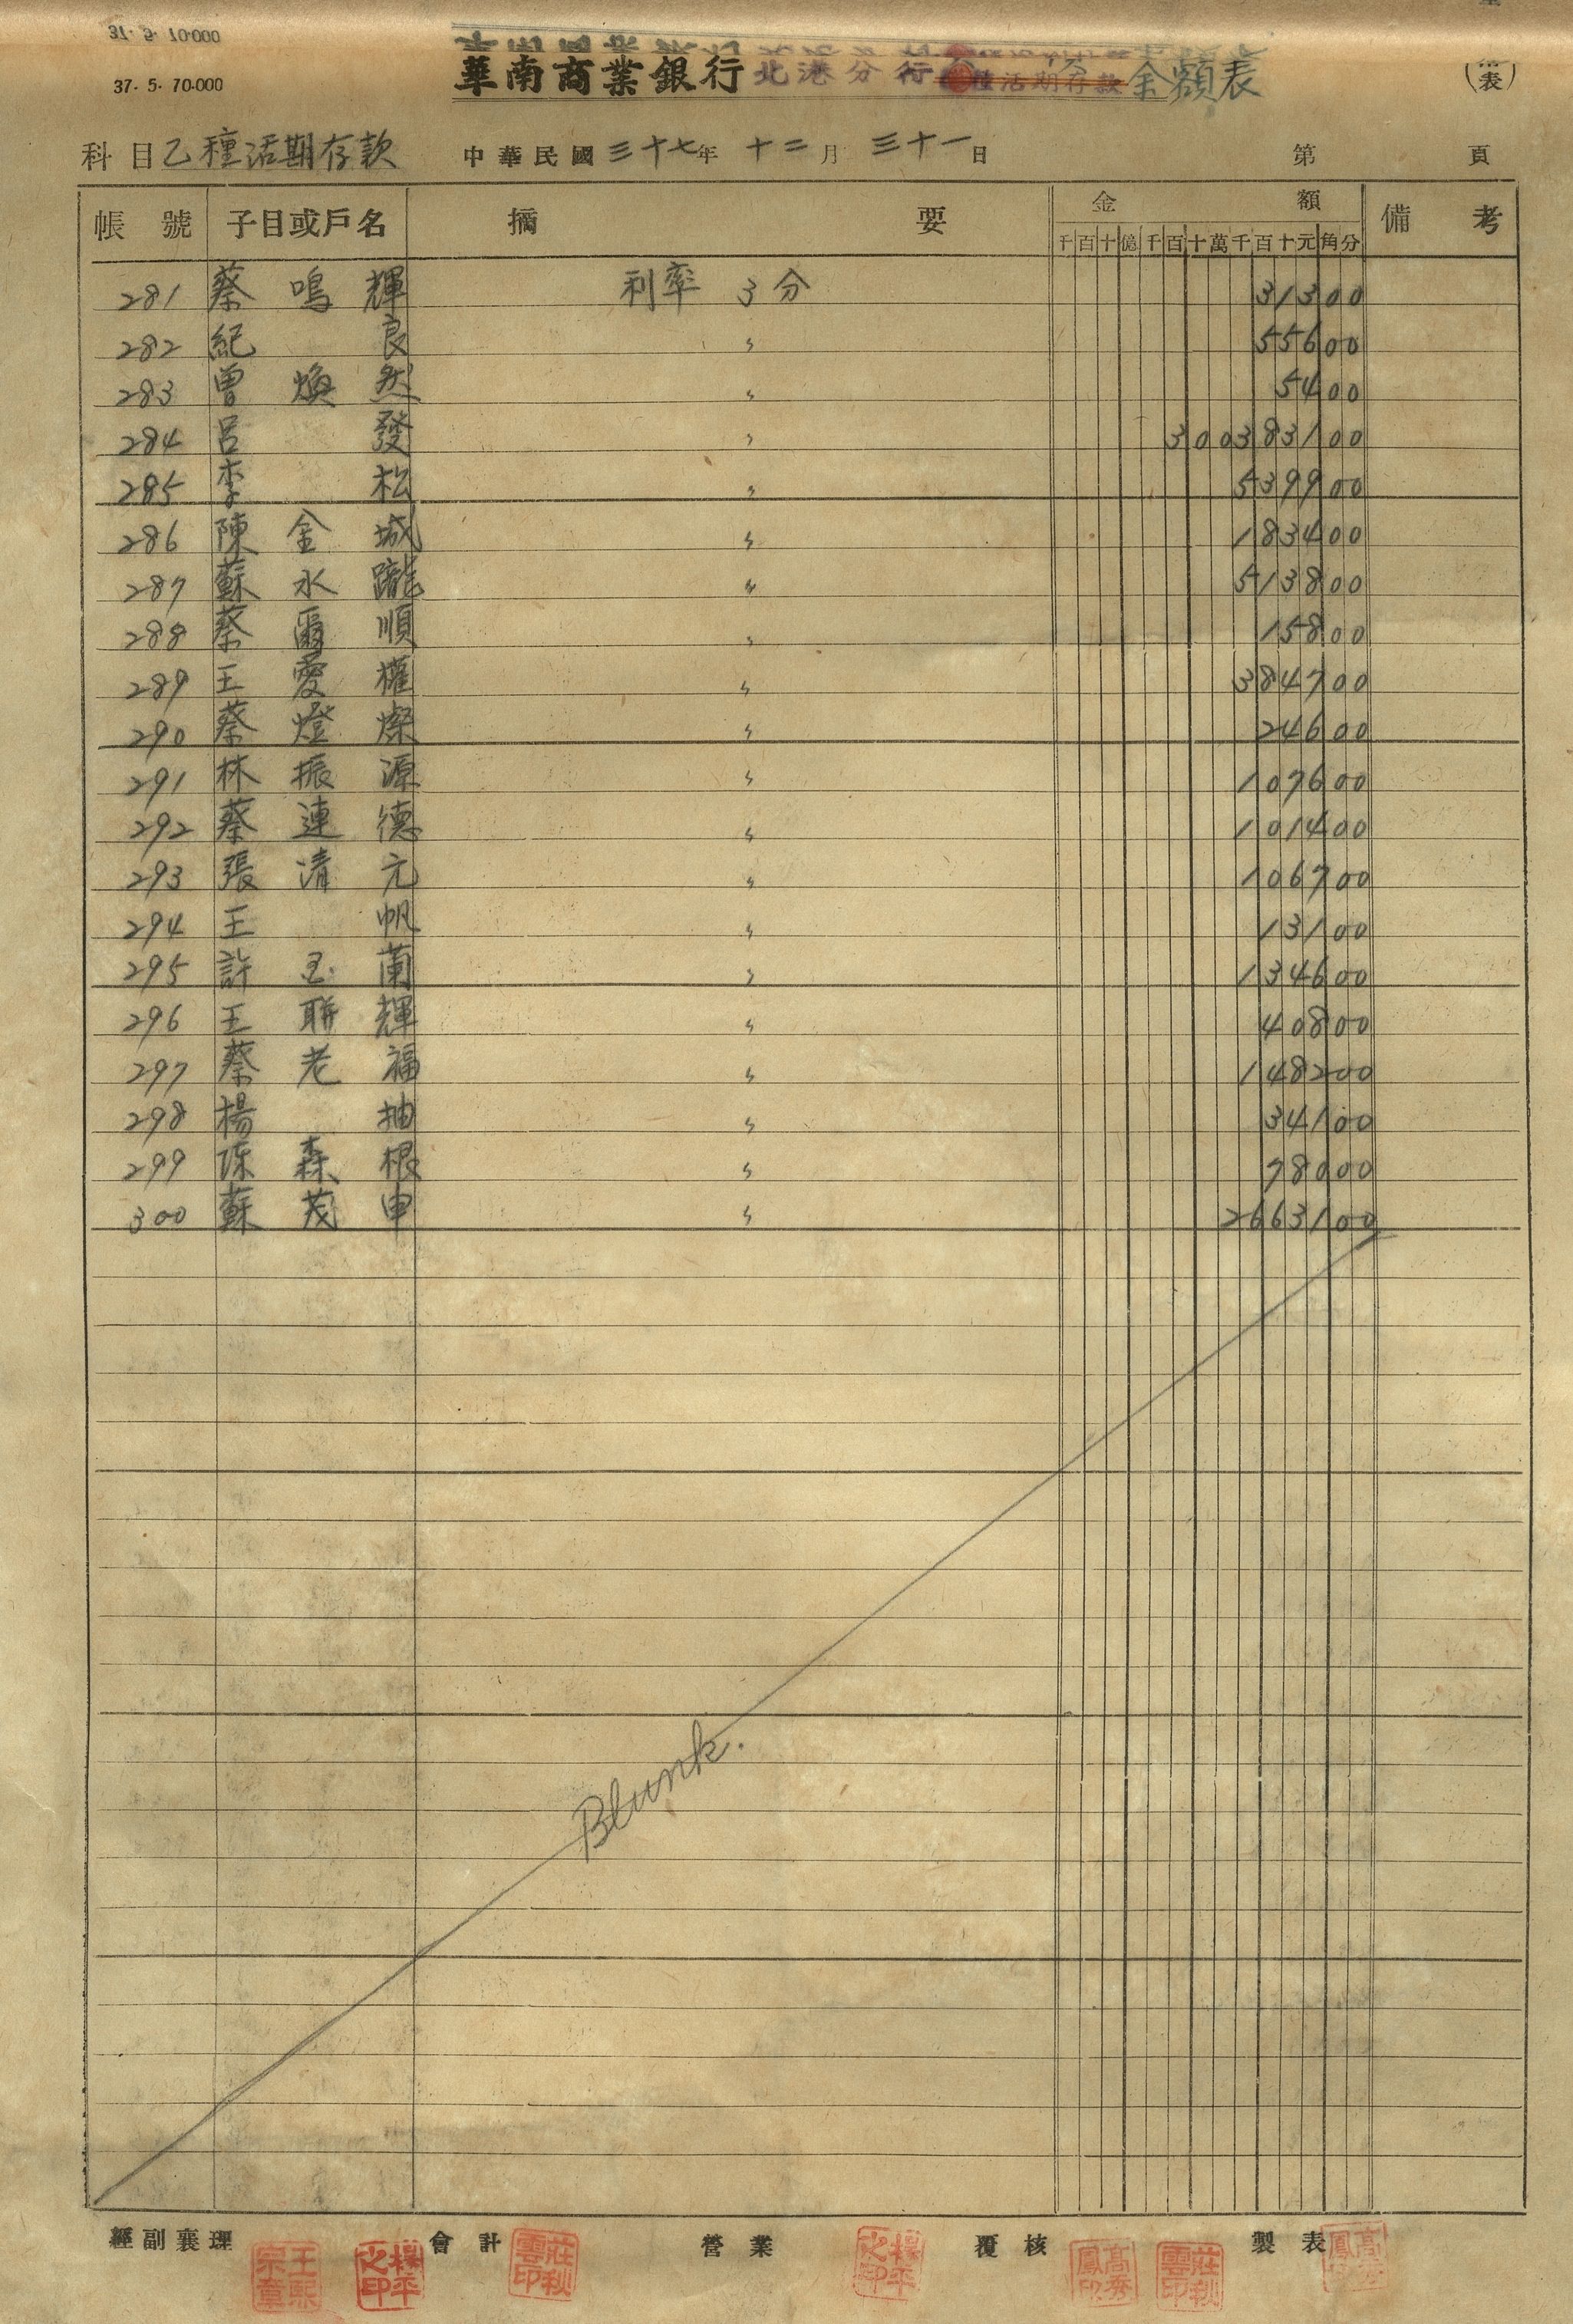 37. 5. 70.000
華南商業銀行北港分行 種活期存款 金額表
科目 乙種活期存款 中華民國三十七年 十二月 三十一日 第 頁
帳號 子目或戶名 摘要 金額 備考
千百十億千百十萬千百十元角分
281 蔡鳴輝 利率 3分 313 00
282 紀良 〃 556 00
283 曾煥然 〃 54 00
284 呂發 〃 3003831 00
285 李松 〃 5399 00
286 陳金城 〃 1834 00
287 蘇水 〃 5138 00
288 蔡爾順 〃 158 00
289 王愛權 〃 3847 00
290 蔡燈燦 〃 246 00
291 林振源 〃 1076 00
292 蔡連德 〃 1014 00
293 張清元 〃 1067 00
294 王帆 〃 131 00
295 許玉蘭 〃 1346 00
296 王聯輝 〃 408 00
297 蔡老福 〃 1482 00
298 楊抽 〃 341 00
299 陳森根 〃 780 00
300 蘇茂申 〃 26631 00
Blunk.
經副襄理 會計 營業 覆核 製表
王熙宗章 楊平之印 莊秋雲印 楊平之印 莊秋雲印